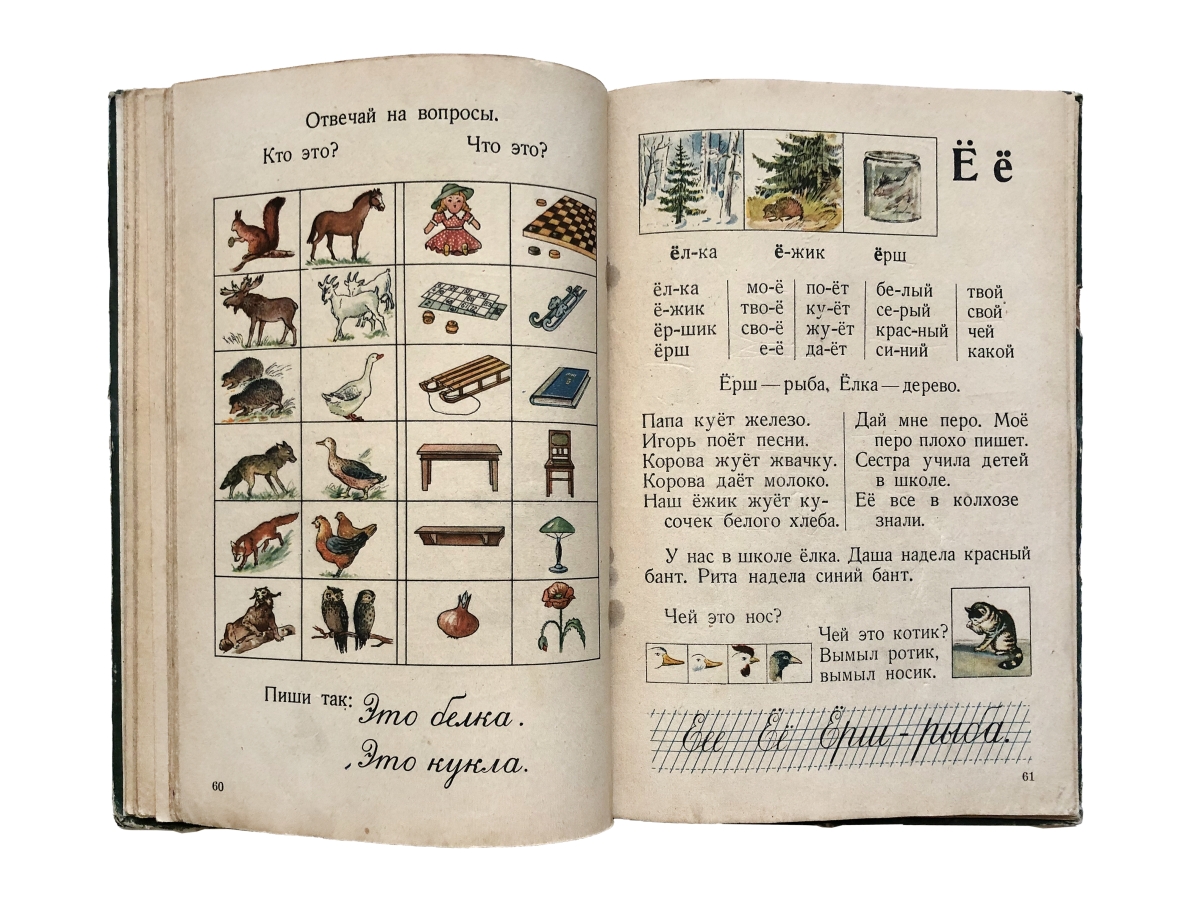 Отвечай на вопросы.
Кто это?
Что это?
Пиши так:
Это белка.
Это кукла.
60
Ё ё
ёл-ка
ё-жик
ёрш
ёл-ка
ё-жик
ёр-шик
ёрш
мо-ё
тво-ё
сво-ё
е-ё
по-ёт
ку-ёт
жу-ёт
да-ёт
бе-лый
се-рый
крас-ный
си-ний
твой
свой
чей
какой
Ёрш — рыба, Ёлка — дерево.
Папа куёт железо.
Игорь поёт песни.
Корова жуёт жвачку.
Корова даёт молоко.
Наш ёжик жуёт ку-
сочек белого хлеба.
Дай мне перо. Моё
перо плохо пишет.
Сестра учила детей
в школе.
Её все в колхозе
знали.
У нас в школе ёлка. Даша надела красный
бант. Рита надела синий бант.
Чей это нос?
Чей это котик?
Вымыл ротик,
вымыл носик.
Еее Ёё Ёрш - рыба.
61